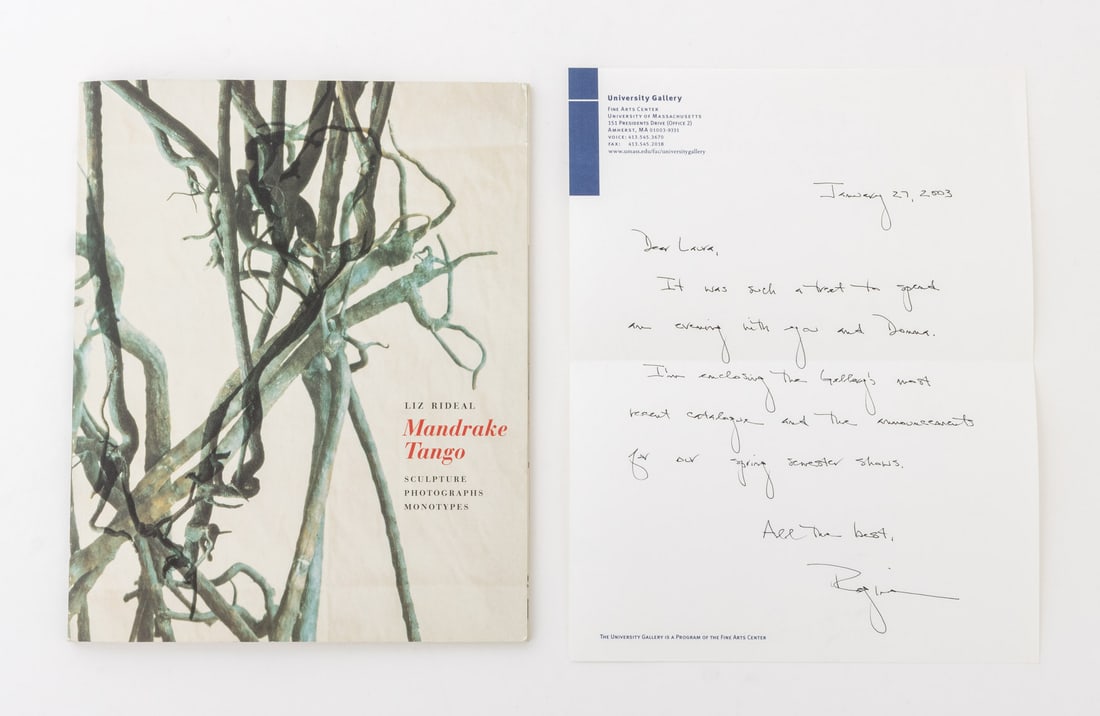 LIZ RIDEAL
Mandrake
Tango
SCULPTURE
PHOTOGRAPHS
MONOTYPES
University Gallery
FINE ARTS CENTER
UNIVERSITY OF MASSACHUSETTS
151 PRESIDENTS DRIVE (OFFICE 2)
AMHERST, MA 01003-9331
VOICE: 413.545.3670
FAX: 413.545.2018
www.umass.edu/fac/universitygallery
January 27, 2003
Dear Laura,
It was such a treat to spend
an evening with you and Donna.
I'm enclosing the Gallery's most
recent catalogue and the announcements
for our spring semester shows.
All the best,
Regina
THE UNIVERSITY GALLERY IS A PROGRAM OF THE FINE ARTS CENTER